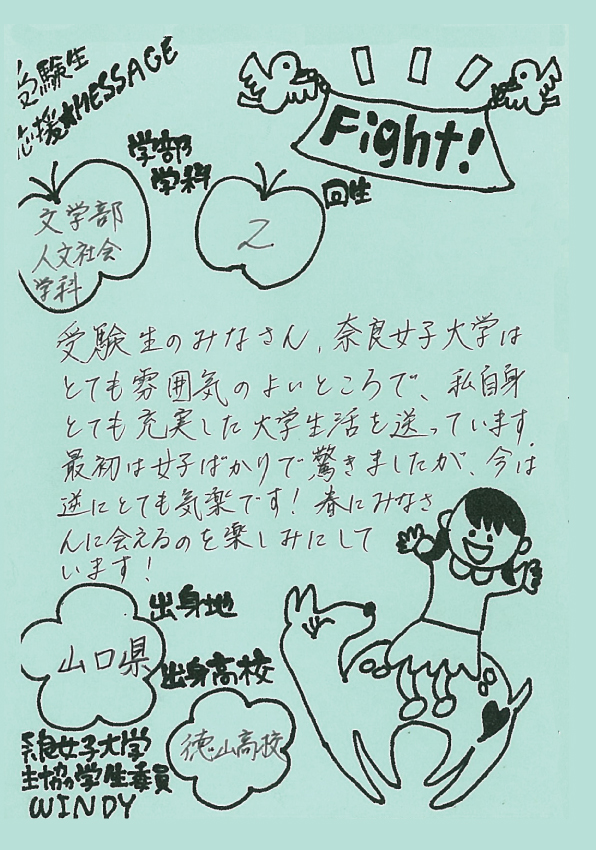 受験生
応援★MESSAGE
Fight!
学部
学科
回生
文学部
人文社会
学科
2
受験生のみなさん、奈良女子大学は
とても雰囲気のよいところで、私自身
とても充実した大学生活を送っています。
最初は女子ばかりで驚きましたが、今は
逆にとても気楽です! 春にみなさ
んに会えるのを楽しみにして
います!
出身地
山口県
出身高校
徳山高校
奈良女子大学
生協学生委員
WINDY